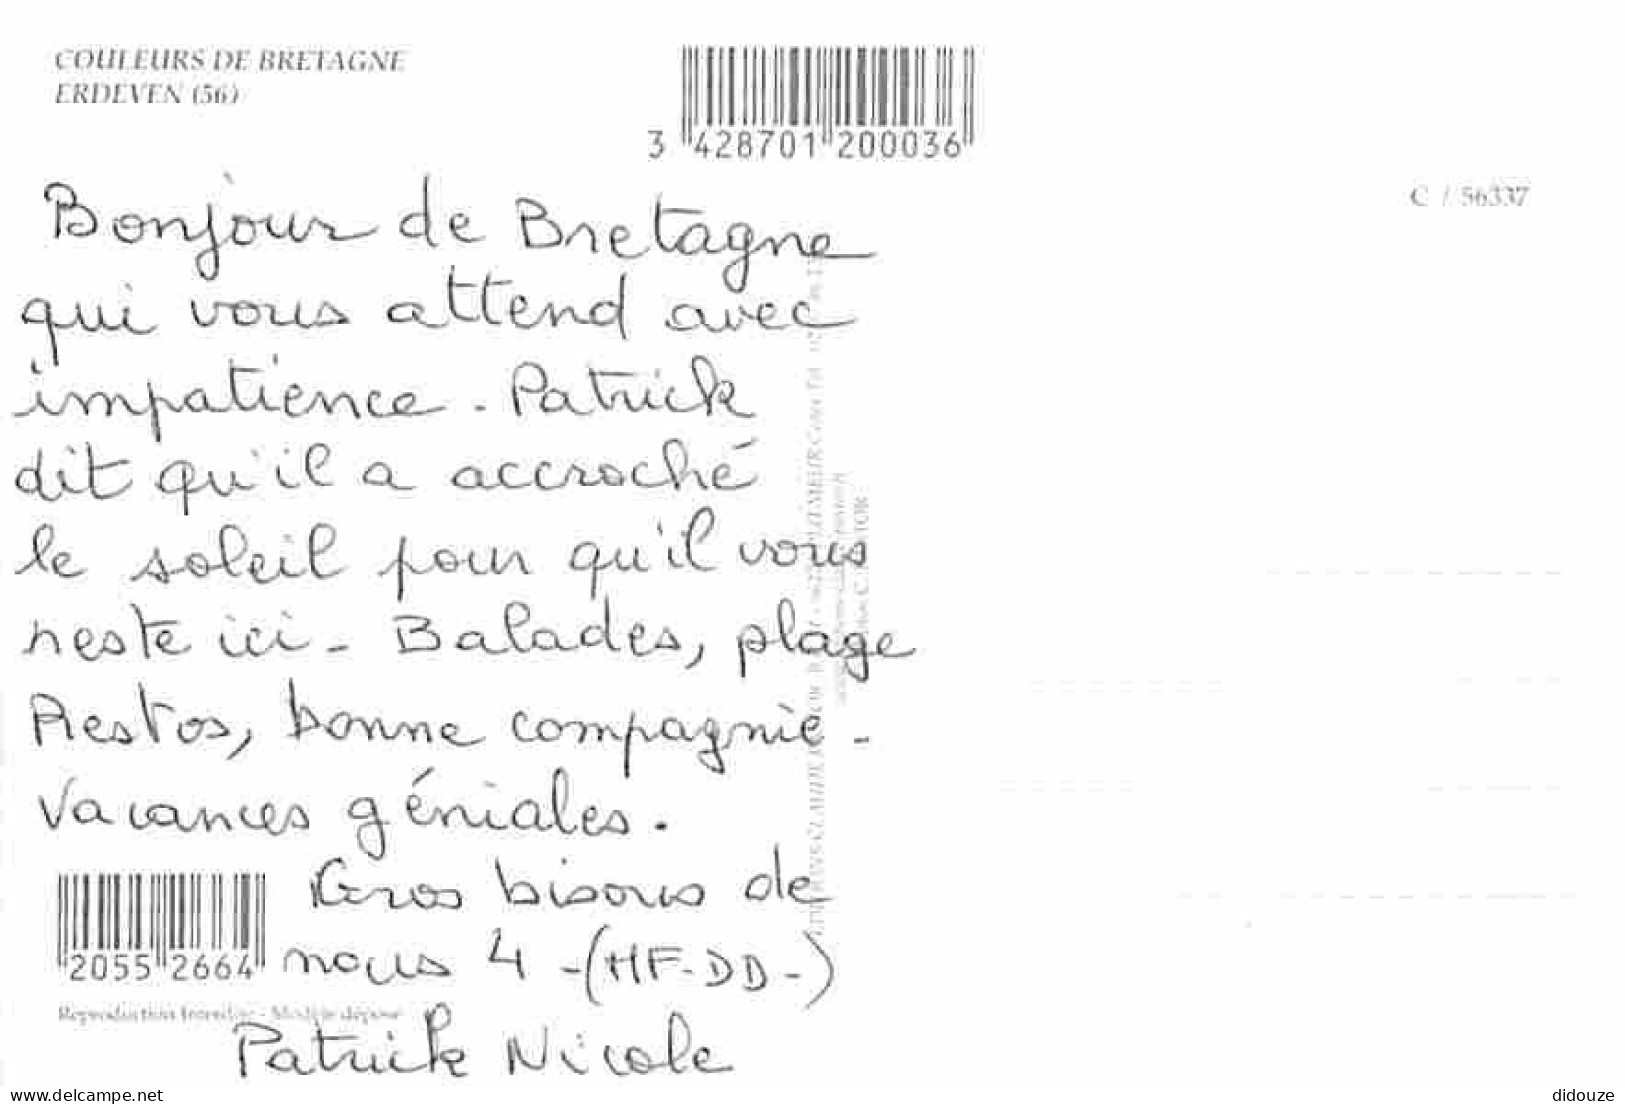 COULEURS DE BRETAGNE
ERDEVEN (56)
3 428701 200036
C / 56337
Bonjour de Bretagne
qui vous attend avec
impatience - Patrick
dit qu'il a accroché
le soleil pour qu'il vous
reste ici - Balades, plage
Restos, bonne compagnie -
Vacances géniales.
Gros bisous de
nous 4 - (MF-DD-)
Patrick Nicole
2055 2664
Reproduction interdite - Modèle déposé
delcampe.net
didouze